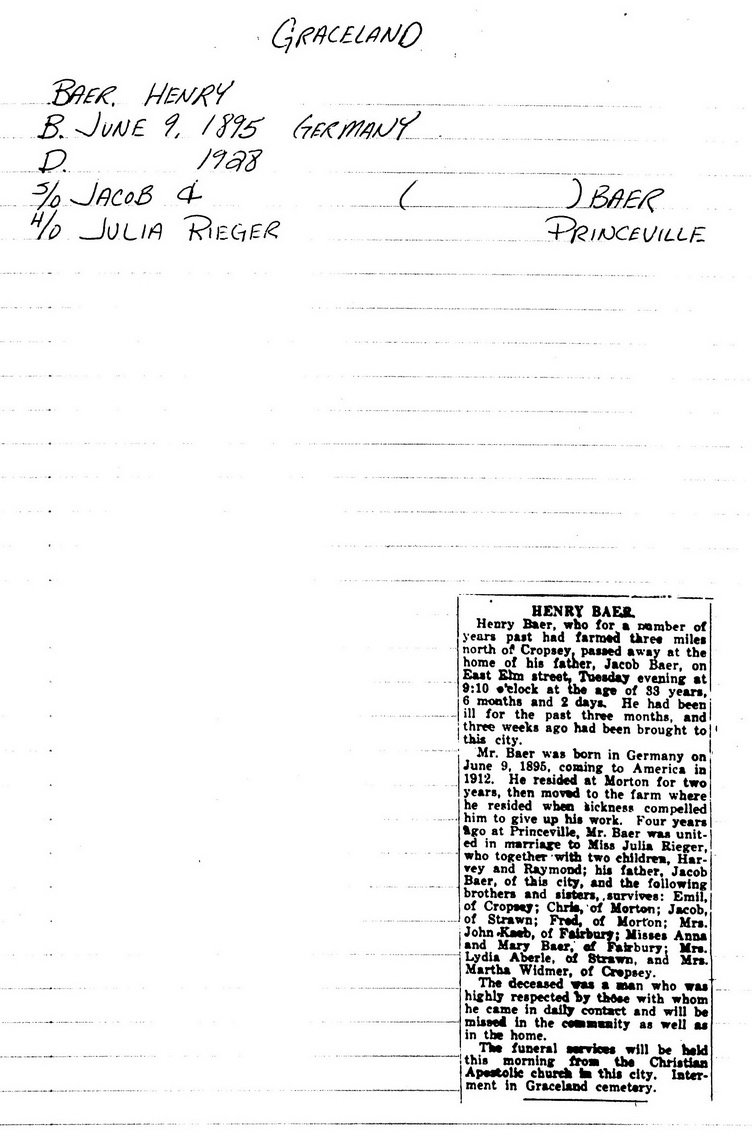 GRACELAND
BAER, HENRY
B. JUNE 9, 1895 GERMANY
D. 1928
S/O JACOB & ( ) BAER
H/O JULIA RIEGER PRINCEVILLE
HENRY BAER
Henry Baer, who for a number of
years past had farmed three miles
north of Cropsey, passed away at the
home of his father, Jacob Baer, on
East Elm street, Tuesday evening at
9:10 o'clock at the age of 33 years,
6 months and 2 days. He had been
ill for the past three months, and
three weeks ago had been brought to
this city.
Mr. Baer was born in Germany on
June 9, 1895, coming to America in
1912. He resided at Morton for two
years, then moved to the farm where
he resided when sickness compelled
him to give up his work. Four years
ago at Princeville, Mr. Baer was unit-
ed in marriage to Miss Julia Rieger,
who together with two children, Har-
vey and Raymond; his father, Jacob
Baer, of this city, and the following
brothers and sisters, survives: Emil,
of Cropsey; Chris, of Morton; Jacob,
of Strawn; Fred, of Morton; Mrs.
John Kaeb, of Fairbury; Misses Anna
and Mary Baer, of Fairbury; Mrs.
Lydia Aberle, of Strawn, and Mrs.
Martha Widmer, of Cropsey.
The deceased was a man who was
highly respected by those with whom
he came in daily contact and will be
missed in the community as well as
in the home.
The funeral services will be held
this morning from the Christian
Apostolic church in this city. Inter-
ment in Graceland cemetery.